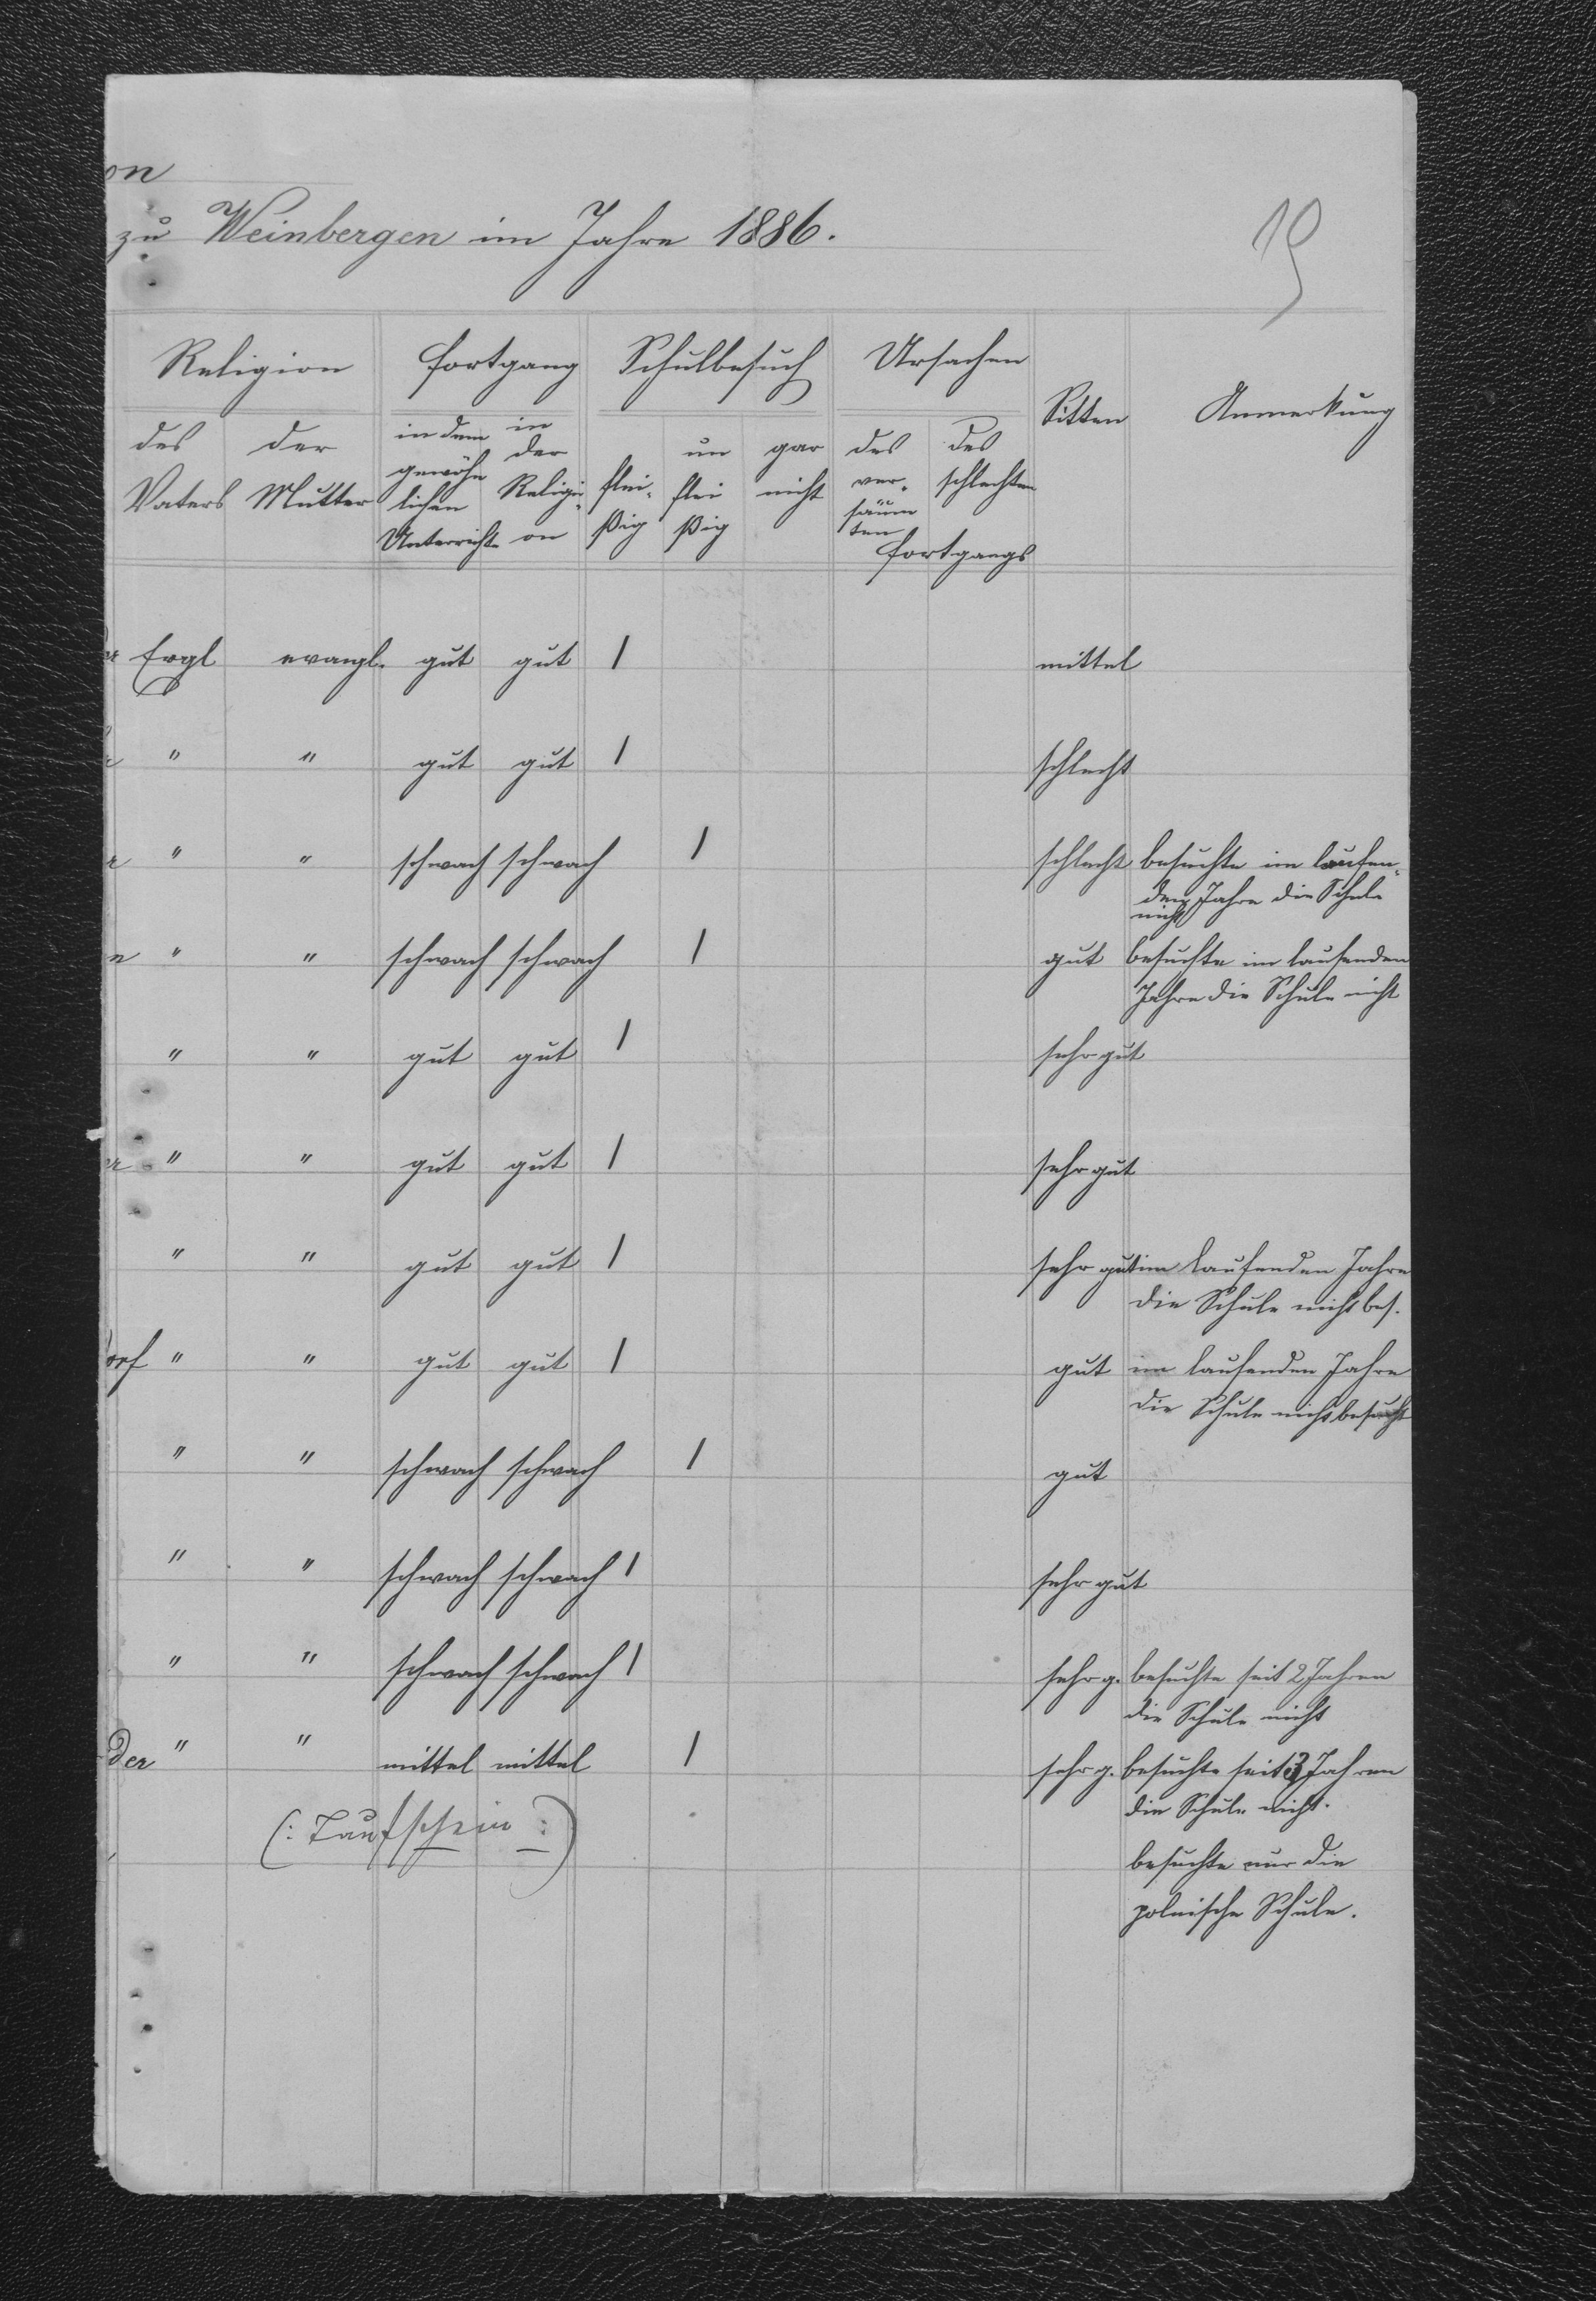 on
zu Weinbergen im Jahre 1886.
19
Religion Fortgang Schulbesuch Ursachen Sitten Anmerkung
des Vaters der Mutter in dem gewöhn lichen Unterricht in der Religi- on flei- ßig un flei ßig gar nicht des ver- säum ten des schlechten
Fortgangs
Evgl evangl. gut gut / mittel
" " gut gut / schlecht
" " schwach schwach / schlecht besuchte im laufen-
den Jahre die Schule
nicht
n " " schwach schwach / gut besuchte im laufenden
Jahre die Schule nicht
" " gut gut / sehr gut
" " gut gut / sehr gut
" " gut gut / sehr gut im laufenden Jahre
die Schule nicht bes.
orf " " gut gut / gut im laufenden Jahre
die Schule nicht besucht
" " schwach schwach / gut
" " schwach schwach / sehr gut
" " schwach schwach / sehr g. besuchte seit 2 Jahren
die Schule nicht
der " " mittel mittel / sehr g. besuchte seit 3 Jahren
die Schule nicht.
(: Taufschein :)
besuchte nur die
polnische Schule.